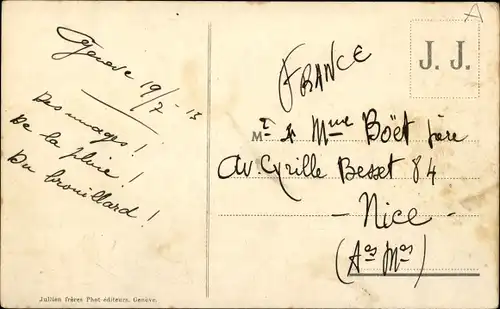 Genève 19/7 - 13
Des nuages !
De la pluie !
Du brouillard !
Jullien frères Phot éditeurs, Genève.
A
J. J.
FRANCE
Mr & Mme Boët père
Av. Cyrille Besset 84
- Nice -
(Aes Mes)